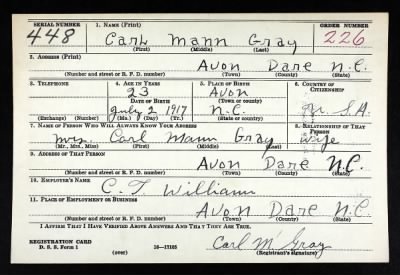 SERIAL NUMBER 1. NAME (Print) ORDER NUMBER
448 Carl Mann Gray 226
(First) (Middle) (Last)
2. ADDRESS (Print)
Avon Dare N.C.
(Number and street or R. F. D. number) (Town) (County) (State)
3. TELEPHONE 4. AGE IN YEARS 5. PLACE OF BIRTH 6. COUNTRY OF CITIZENSHIP
23 Avon
DATE OF BIRTH (Town or county)
July 2 1917 N.C. U.S.A.
(Exchange) (Number) (Mo.) (Day.) (Yr.) (State or country)
7. NAME OF PERSON WHO WILL ALWAYS KNOW YOUR ADDRESS 8. RELATIONSHIP OF THAT PERSON
Mrs. Carl Mann Gray Wife
(Mr., Mrs., Miss) (First) (Middle) (Last)
9. ADDRESS OF THAT PERSON
Avon Dare N.C.
(Number and street or R. F. D. number) (Town) (County) (State)
10. EMPLOYER'S NAME
C. T. Williams
11. PLACE OF EMPLOYMENT OR BUSINESS
Avon Dare N.C.
(Number and street or R. F. D. number) (Town) (County) (State)
I AFFIRM THAT I HAVE VERIFIED ABOVE ANSWERS AND THAT THEY ARE TRUE.
REGISTRATION CARD
D. S. S. Form 1 16—17105 Carl M. Gray
(over) (Registrant's signature)